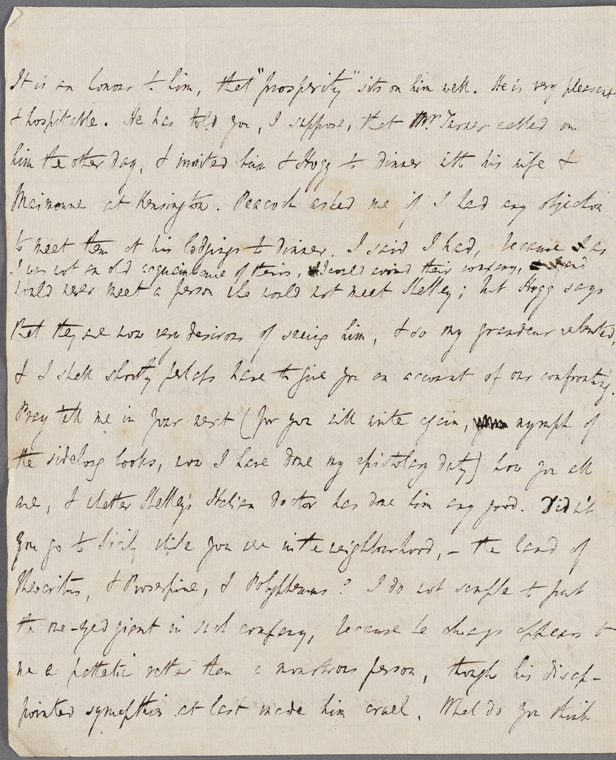 It is an honour to him, that "prosperity" sits on him well. He is very pleasant
& hospitable. He has told you, I suppose, that Mr. Turner called on
him the other day, & invited him & Hogg to dinner with his wife &
Maimoune at Kensington. Peacock asked me if I had any objection
to meet them at his lodgings to dinner. I said I had, because I as
I was not an old acquaintance of theirs, I could avoid their company, and
would never meet a person who would not meet Shelley; but Hogg says
that they are now very desirous of seeing him, & so my grandeur relented,
& I shall shortly perhaps have to give you an account of our confronting.
Pray tell me in your next (for you will write again, nymph of
the sidelong looks, now I have done my epistolary duty) how you all
are, & whether Shelley's Italian doctor has done him any good. Didn't
you go to Sicily while you were in the neighbourhood, – the land of
Theocritus, & Proserpine, & Polyphemus? I do not scruple to put
the one-eyed giant in such company, because he always appears to
me a pathetic rather than a monstrous person, though his disap-
pointed sympathies at last made him cruel. What do you think